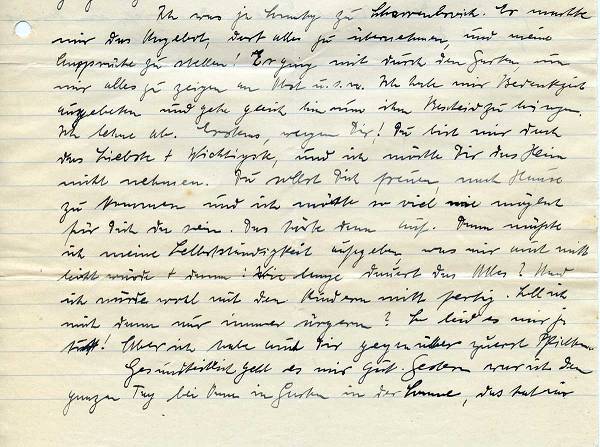 Ich war ja Sonntag zu Scharrenbroich. Er machte
mir das Angebot, dort alles zu übernehmen, und meine
Ansprüche zu stellen! Er ging mit durch den Garten um
mir alles zu zeigen an Obst u.s.w. Ich habe mir Bedenkzeit
ausgebeten und gehe gleich hin um ihm Bescheid zu bringen.
Ich lehne ab. Erstens, wegen Dir! Du bist mir doch
das Liebste + Wichtigste, und ich möchte Dir das Heim
nicht nehmen. Du sollst Dich freuen, nach Hause
zu kommen und ich möchte so viel wie möglich
für Dich da sein. Das hörte dann auf. Dann müßte
ich meine Selbstständigkeit aufgeben, was mir auch nicht
leicht würde + dann! Wie lange dauert das Alles? Und
ich würde wohl mit den Kindern nicht fertig. Soll ich
mich dann nur immer ärgern? So leid es mir ja
tut! Aber ich habe auch Dir gegenüber zuerst Pflichten.
Gesundheitlich geht es mir gut. Gestern war ich den
ganzen Tag bei im Garten in der Sonne, das hat